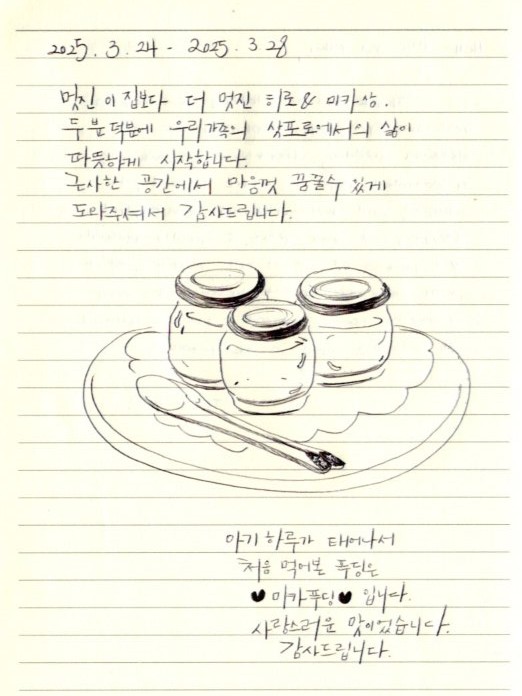 2025. 3. 24 - 2025. 3 28
멋진 이 집보다 더 멋진 히로 & 미카상.
두 분 덕분에 우리가족의 삿포로에서의 삶이
따뜻하게 시작합니다.
근사한 공간에서 마음껏 꿈꿀수 있게
도와주셔서 감사드립니다.
아기 하루가 태어나서
처음 먹어본 푸딩은
♥ 미카푸딩 ♥ 입니다.
사랑스러운 맛이었습니다.
감사드립니다.